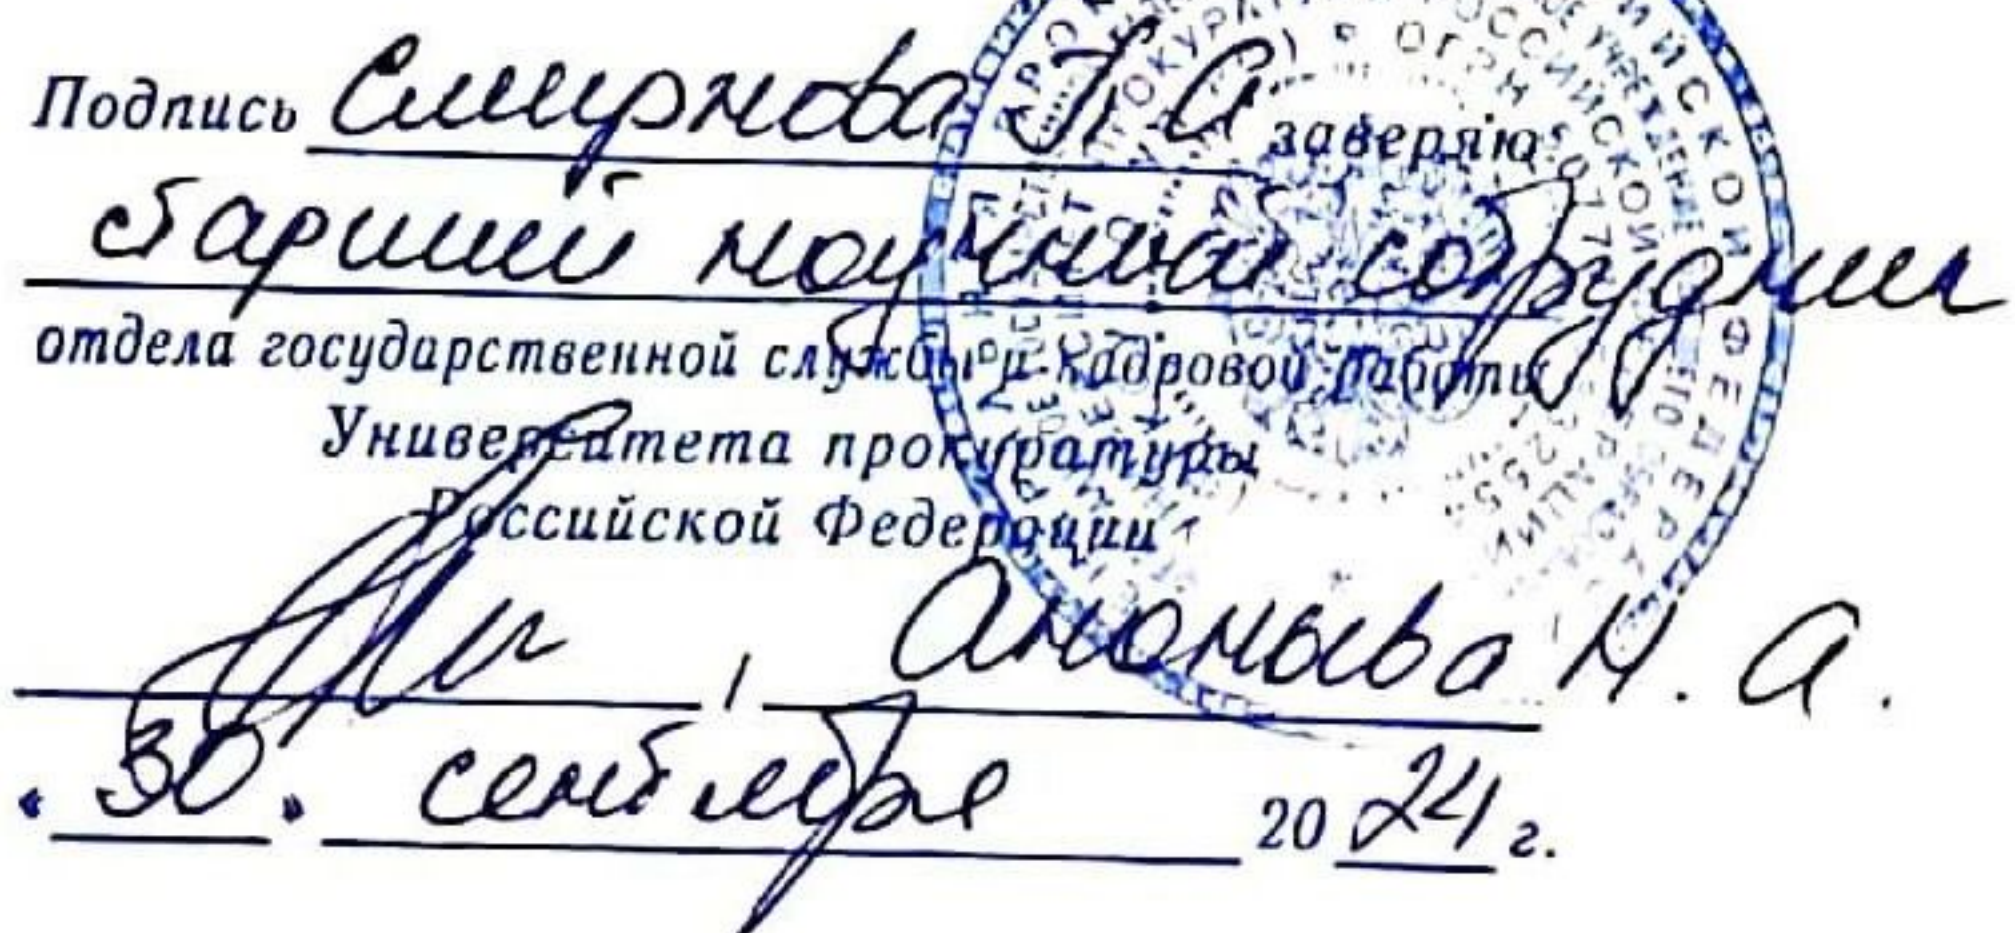 Подпись Смирнова Г. А. заверяю
старший научный сотрудник
отдела государственной службы и кадровой работы
Университета прокуратуры
Российской Федерации
/ Ананьева Н. А.
« 30 » сентября 20 24 г.
ОГРН
РОССИЙСКОЙ